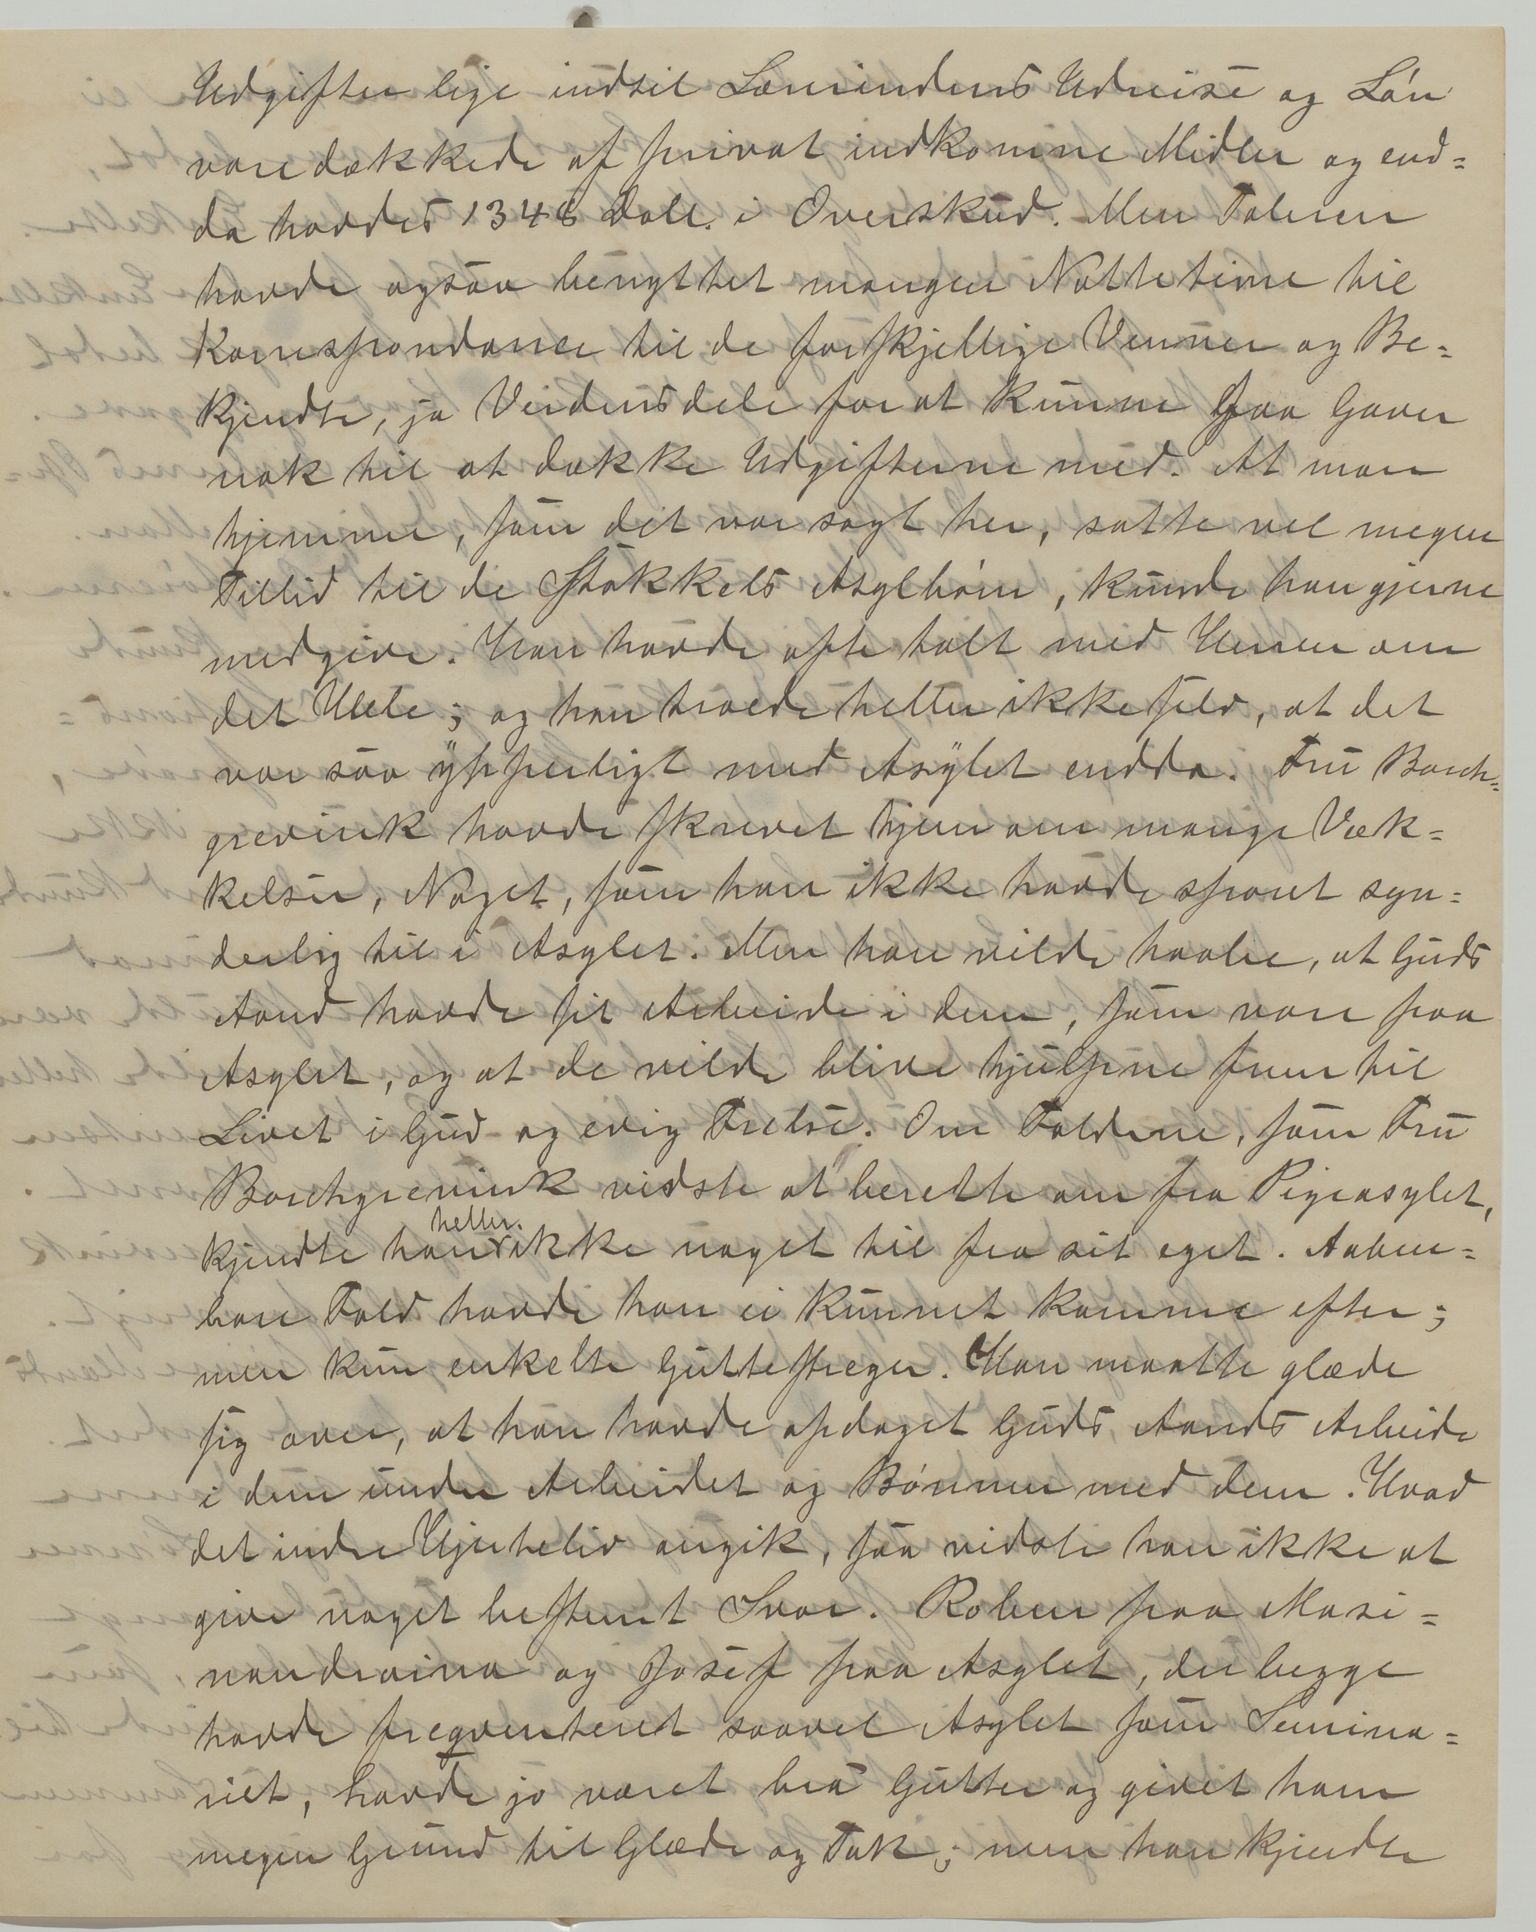 Udgifter lige indtil Lærerindens Udreise og Løn
vare dækkede af privat indkomne Midler og end=
da havdes 1348 Doll. i Overskud. Men Taleren
havde ogsaa benyttet mangen Nattetime til
Korrespondance til de forskjellige Venner og Be=
kjendte, ja Verdensdele for at kunne faa Gaver
nok til at dække Udgifterne med. At man
hjemme, som det var sagt her, satte vel megen
Tillid til de Stakkels Asylbørn, kunde han gjerne
medgive. Han havde ofte talt med Herren om
det Hele; og han troede heller ikke selv, at det
var saa ypperligt med Asylet endda. Fru Borch=
grevink havde skrevet hjem om mange Væk=
kelser, Noget, som han ikke havde sporet syn=
derlig til i Asylet. Men han vilde haabe, at Guds
Aand havde sit Arbeide i dem, som vare paa
Asylet, og at de vilde blive hjulpne frem til
Livet i Gud og evig Frelse. Om Faldene, som Fru
Borchgrevink vidste at berette om fra Pigeasylet,
kjendte han heller ikke noget til fra sit eget. Aaben=
bare Fald havde han ei kunnet komme efter;
men kun enkelte Guttestreger. Man maatte glæde
sig over, at han havde opdaget Guds Aands Arbeide
i dem under Arbeidet og Bønnen med dem. Hvad
det indre Hjerteliv angik, saa vidste han ikke at
give noget bestemt Svar. Roben paa Masi=
nandraina og Josef paa Asylet, der begge
havde freqventeret saavel Asylet som Semina=
riet, havde jo været bra Gutter og givet ham
megen Grund til Glæde og Tak; men han kjendte